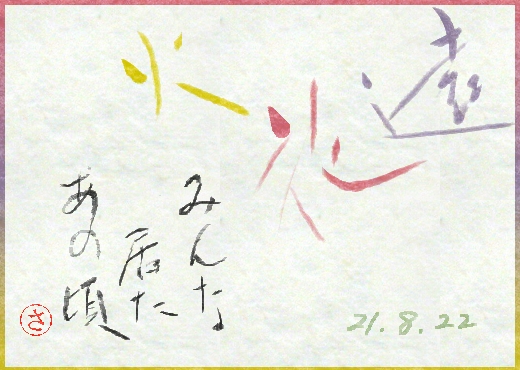 遠花火
みんな
居た
あの頃
さ
21.8.22